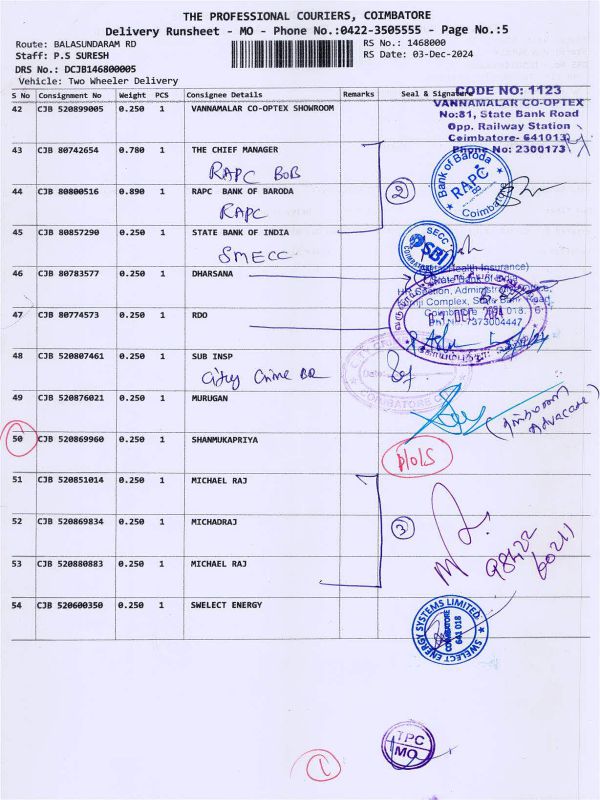 THE PROFESSIONAL COURIERS, COIMBATORE
Delivery Runsheet - MO - Phone No.:0422-3505555 - Page No.:5
Route: BALASUNDARAM RD RS No.: 1468000
Staff: P.S SURESH RS Date: 03-Dec-2024
DRS No.: DCJB146800005
Vehicle: Two Wheeler Delivery
S No Consignment No Weight PCS Consignee Details Remarks Seal & Signature
CODE NO: 1123
VANNAMALAR CO-OPTEX
No:81, State Bank Road
Opp. Railway Station
Coimbatore- 641013
Phone No: 2300173
42 CJB 520899005 0.250 1 VANNAMALAR CO-OPTEX SHOWROOM
43 CJB 80742654 0.780 1 THE CHIEF MANAGER
RAPC BOB
Bank of Baroda
RAPC
Coimbatore
2
44 CJB 80800516 0.890 1 RAPC BANK OF BARODA
RAPC
45 CJB 80857290 0.250 1 STATE BANK OF INDIA
SMECC
SECC
SBI
46 CJB 80783577 0.250 1 DHARSANA
Health Insurance)
HR Section, Administrative Office,
Complex, State Bank Road
Coimbatore
DEC 2024
7373004447
47 CJB 80774573 0.250 1 RDO
48 CJB 520807461 0.250 1 SUB INSP
City Crime BR
COIMBATORE
49 CJB 520876021 0.250 1 MURUGAN
Advocate)
50 CJB 520869960 0.250 1 SHANMUKAPRIYA
51 CJB 520851014 0.250 1 MICHAEL RAJ
52 CJB 520869834 0.250 1 MICHADRAJ
3
98422
60211
53 CJB 520880883 0.250 1 MICHAEL RAJ
54 CJB 520600350 0.250 1 SWELECT ENERGY
SWELECT ENERGY SYSTEMS LIMITED
COIMBATORE
641 018
TPC
MO
1